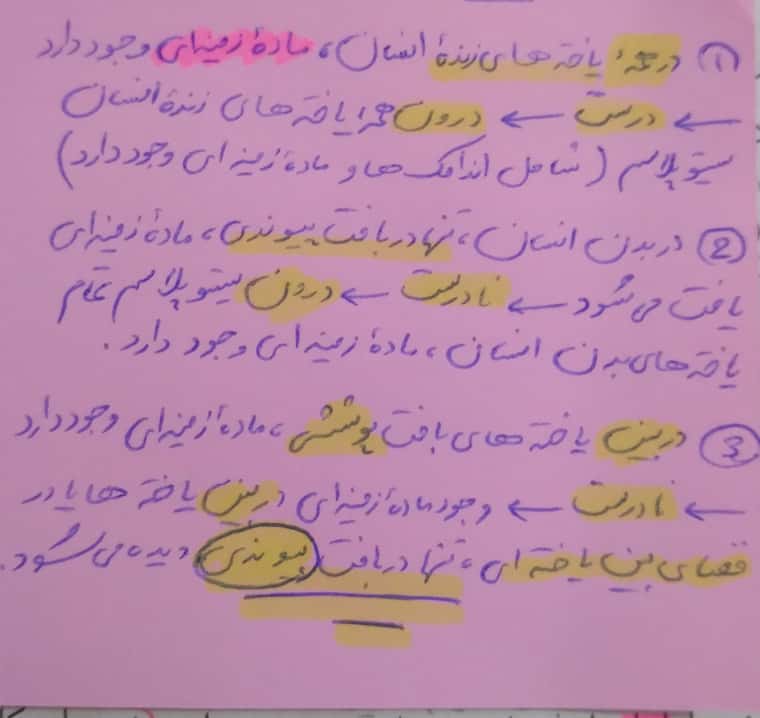 ① در همهٔ یاخته های زندهٔ انسان، مادهٔ زمینه ای وجود دارد
← درست ← درون همهٔ یاخته های زندهٔ انسان
سیتوپلاسم (شامل اندامک ها و مادهٔ زمینه ای وجود دارد)
② در بدن انسان، تنها در بافت پیوندی، مادهٔ زمینه ای
یافت می شود ← نادرست ← درون سیتوپلاسم تمام
یاخته های بدن انسان، مادهٔ زمینه ای وجود دارد.
③ در بین یاخته های بافت پوششی، مادهٔ زمینه ای وجود دارد
← نادرست ← وجود مادهٔ زمینه ای در بین یاخته ها یا در
فضای بین یاخته ای، تنها در بافت پیوندی دیده می شود.